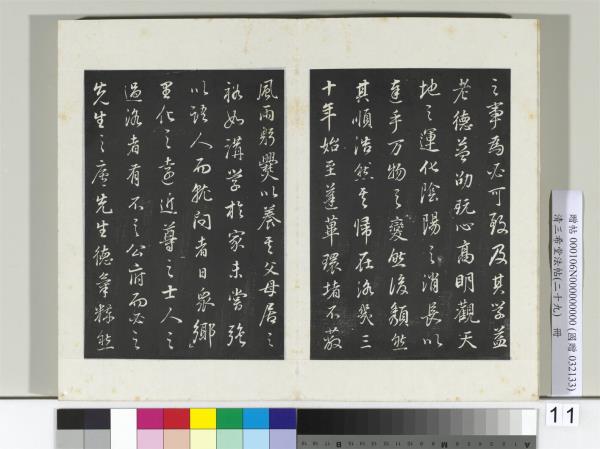 之事為必可致及其学益
老德益劭玩心高明觀天
地之運化陰陽之消長以
達乎万物之變然後頽然
其順浩然其歸在洛幾三
十年始至蓬蓽環堵不蔽
風雨躬爨以養其父母居之
裕如講学於家未嘗強
以語人而就問者日眾鄉
里化之遠近尊之士人之
過洛者有不之公府而必之
先生之廬先生德氣粹然
贈帖 000106N000000000 (國贈 032133)
清三希堂法帖(二十九) 冊
11